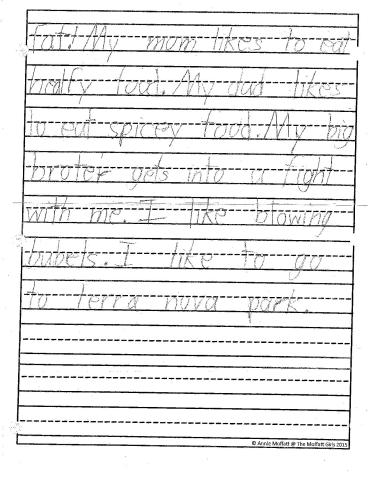 fat! My mom likes to eat
healfy food. My dad likes
to eat spicey food. My big
broter gets into a fight
with me. I like blowing
bubels. I like to go
to terra nova park.
© Annie Moffatt @ The Moffatt Girls 2015